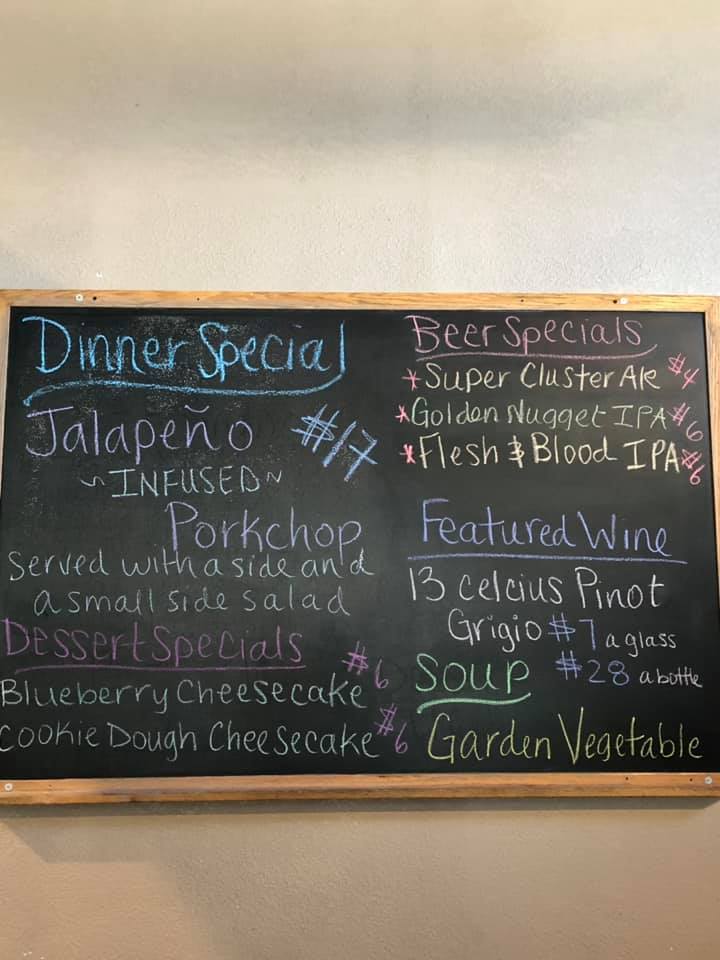 Dinner Special
Jalapeño $17
~INFUSED~
Porkchop
Served with a side and
a small side salad
Dessert Specials
Blueberry Cheesecake $6
Cookie Dough Cheesecake $6
Beer Specials
*Super Cluster Ale $4
*Golden Nugget IPA $6
*Flesh & Blood IPA $6
Featured Wine
13 celcius Pinot
Grigio $7 a glass
$28 a bottle
Soup
Garden Vegetable